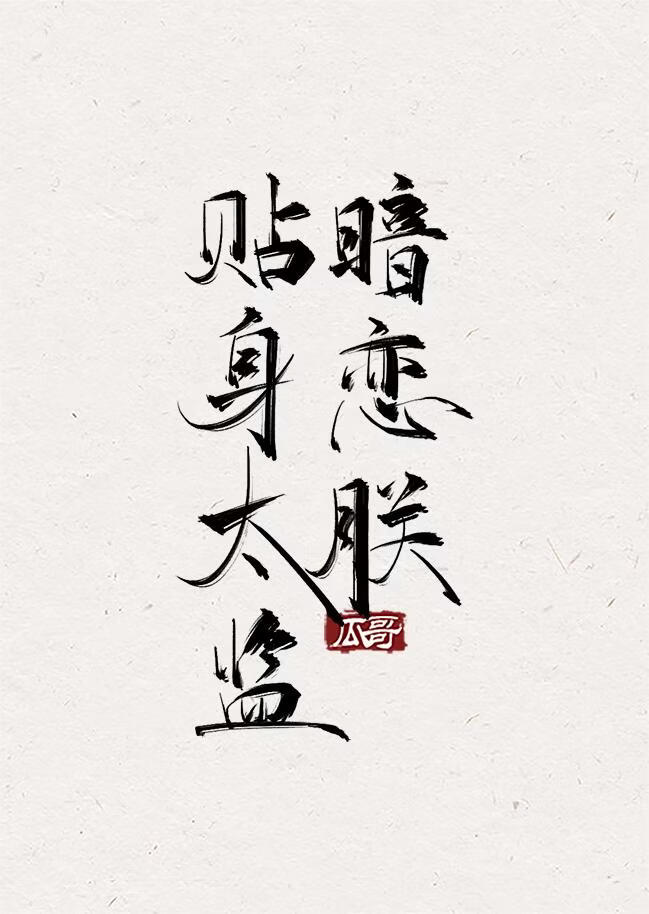 贴身太监
暗恋朕
瓜哥